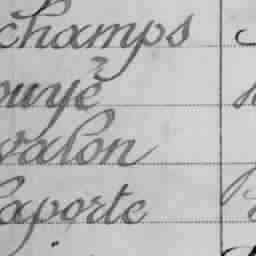 champs
ouyé
valon
aporte